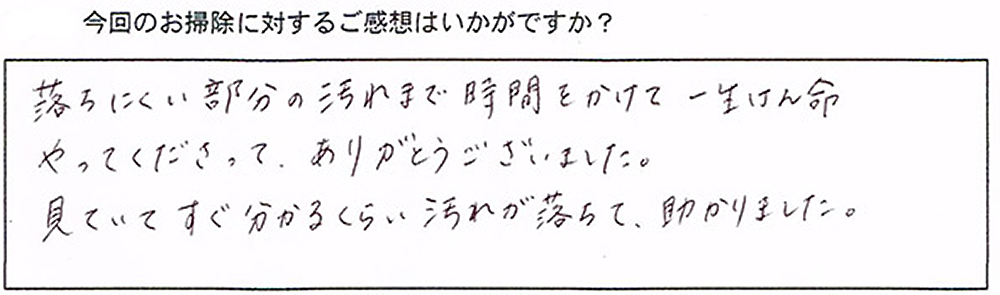 今回のお掃除に対するご感想はいかがですか？
落ちにくい部分の汚れまで時間をかけて一生けん命
やってくださって、ありがとうございました。
見ていてすぐ分かるくらい汚れが落ちて、助かりました。